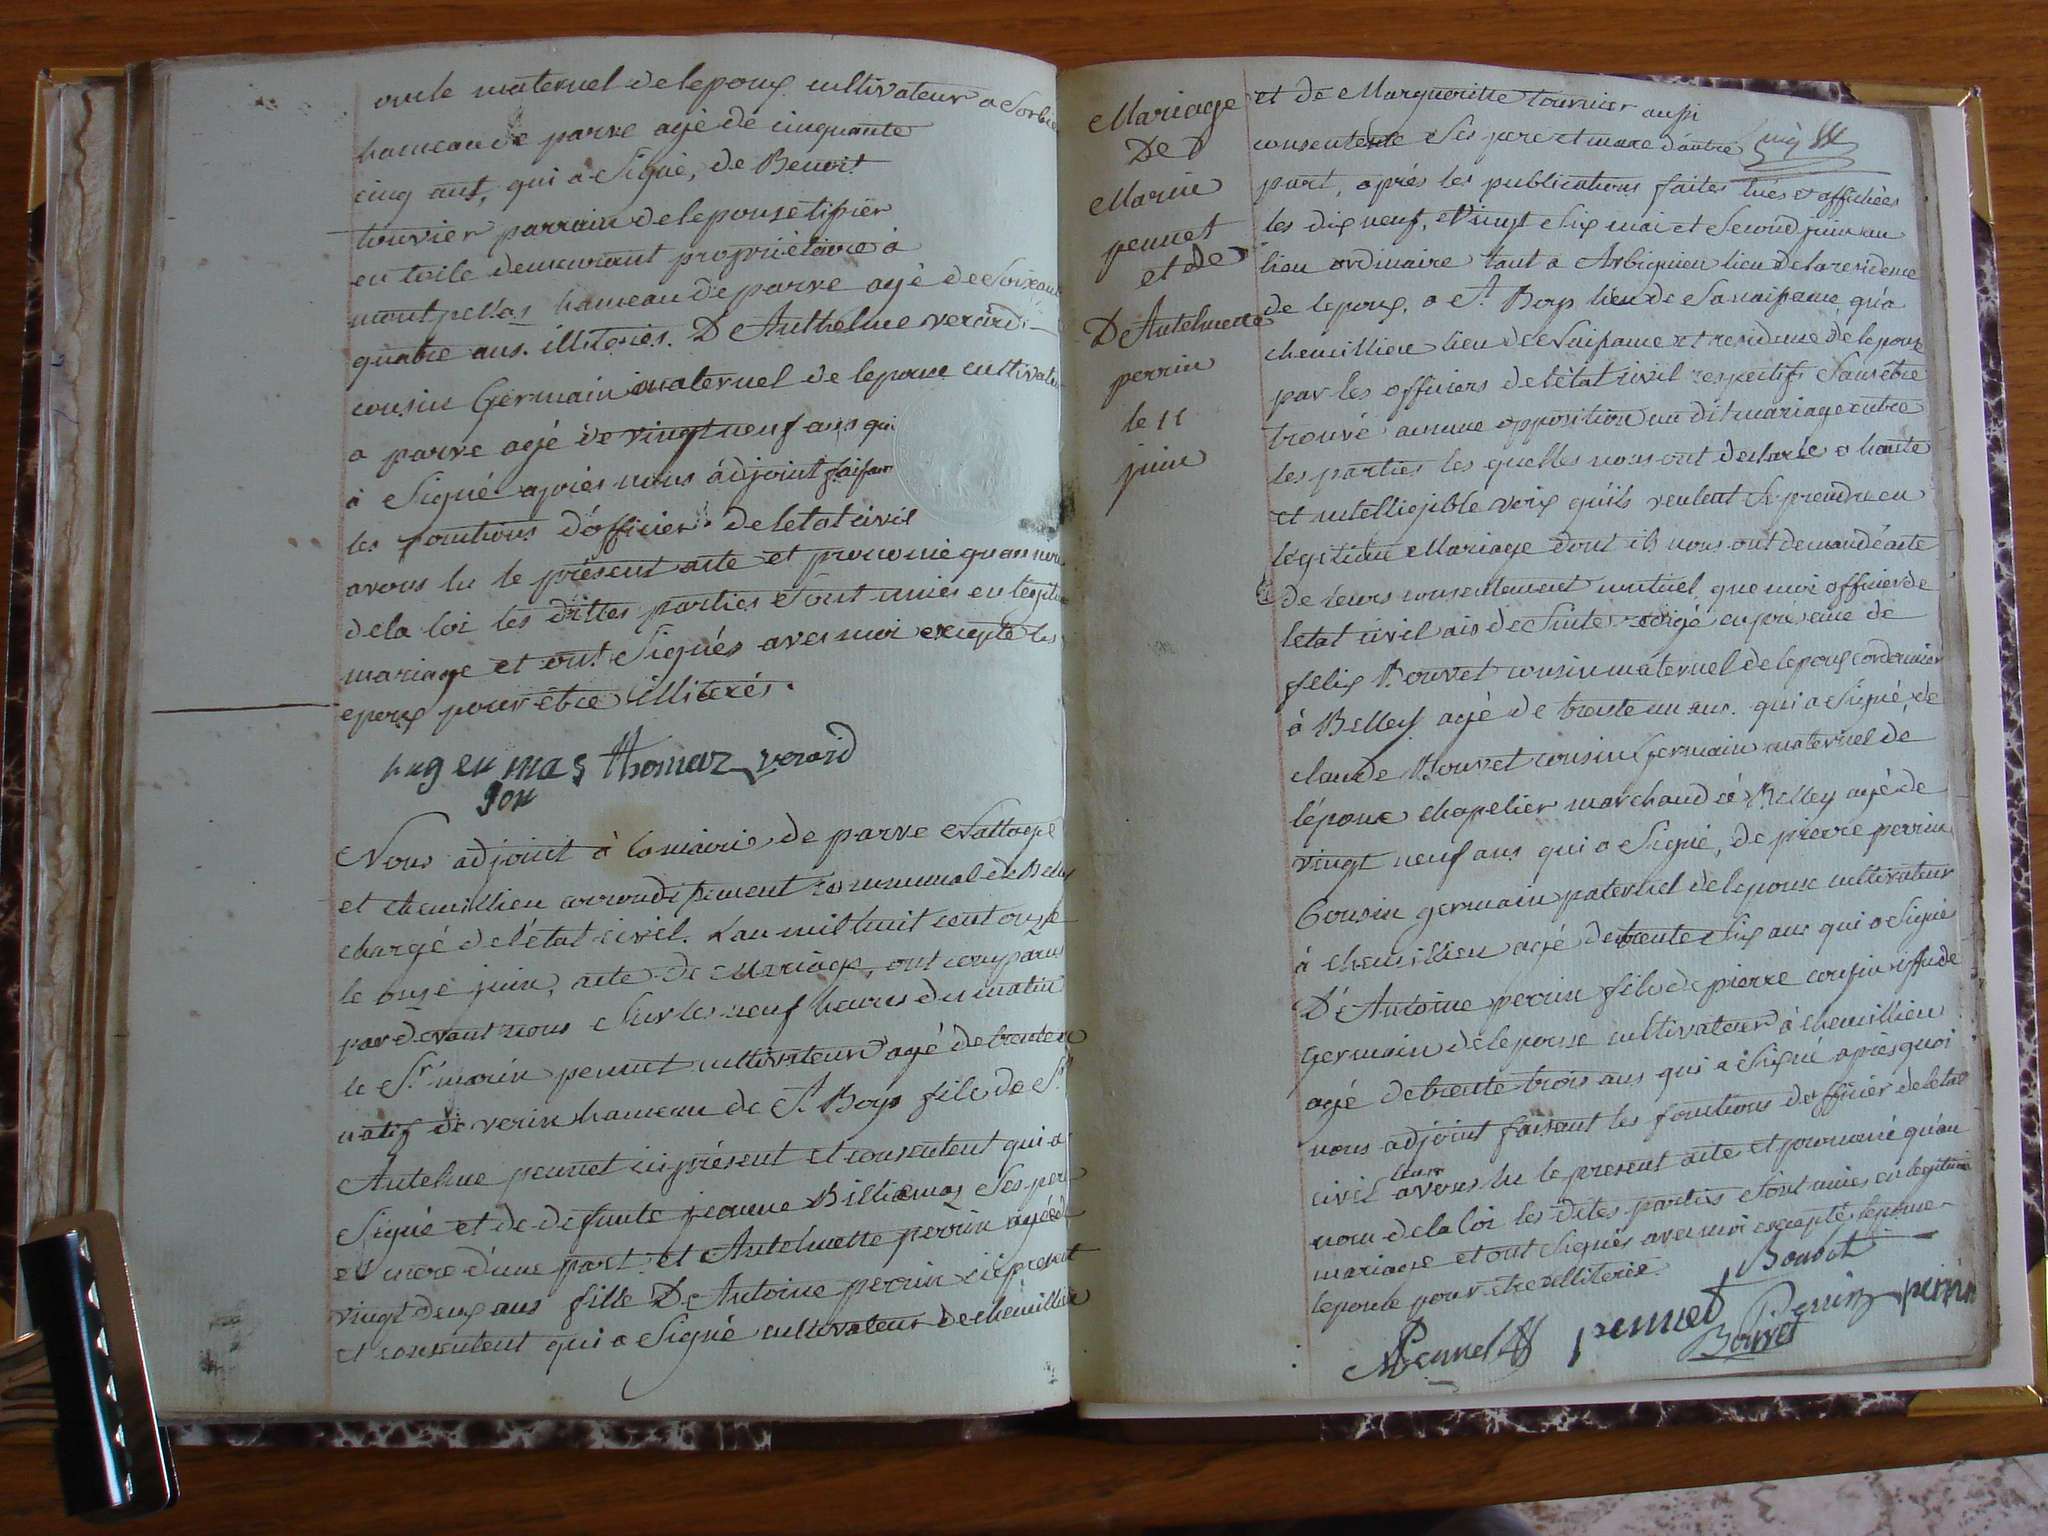 oncle maternel de lepoux cultivateur a Sorbier
hameau de parve agé de cinquante
cinq ans, qui a Signé, de Benoit
touvier parrain de lepouse tissier
en toile demeurant propriétaire à
montpellas hameau de parve agé de Soixante
quatre ans. illiterés. D Anthelme verard
cousin Germain maternel de lepouse cultivateur
a parve agé de vingt neuf ans qui
à Signé après nous adjoint faisant
les fonctions d'officier de letat civil
avons lu le présent acte et prononcé quau nom
de la loi les dittes parties Sont unies en legitime
mariage et ont Signés avec moi excepté les
epoux pour être illiterés.
hugen mas thomaz verard
Nous adjoint à la mairie de parve Nattages
et chemillieu arrondissement communal de Belley
chargé de l'état civil. L'an mil huit cent onze
le onze juin, acte de Mariage, ont comparus
pardevant nous Sur les neuf heures du matin
le Sr marin pennet cultivateur agé de trente
natif de verin hameau de St Boys fils de Sr
Antelme pennet ici présent et consentent qui a
Signé et de defunte jeanne Billiemaz Ses pere
et mere d'une part. et Antelmette perrin agée de
vingt deux ans fille D Antoine perrin ici present
et consentent qui a Signé cultivateur de chemillieu
Mariage
De
Marin
pennet
et de
D Antelmette
perrin
le 11
juin
et de Margueritte tournier aussi
consentente Ses pere et mere d'autre
part, après les publications faites lués et affichées
les dix neuf, et Vingt Six mai et Second juin au
lieu ordinaire tant a Arbignieu lieu de la residence
de lepoux, a St Boys lieu de Sa naissance, qu'a
chemillieu lieu de Naissance et residence de lepouse
par les officiers de l'état civil respectifs Sans être
trouvé aucune opposition au dit mariage entre
les parties les quelles nous ont déclaré a haute
et intelligible voix qu'ils veulent Se prendre en
légitime Mariage dont ils nous ont demandé acte
de leurs consentement mutuel, que moi officier de
letat civil ais de Suite redigé en présence de
felix Bouvet cousin maternel de lepoux cordonnier
à Belley agé de trente un ans. qui a Signé, de
claude Bouvet cousin Germain maternel de
l'époux chapelier marchand à Belley agé de
vingt neuf ans qui a Signé, de pierre perrin
Cousin germain paternel de lepouse cultivateur
à chemillieu agé de trente Six ans qui a Signé
D'Antoine perrin fils de pierre cousin issu de
Germain de lepouse cultivateur à chemillieu
agé de trente trois ans qui a Signé après quoi
nous adjoint faisant les fonctions d'officier de letat
civil leur avons lu le present acte et prononcé qu'au
nom de la loi les dites parties Sont unies en legitime
mariage et ont Signés avec moi excepté lepouse
lepouse pour etre illiterée.
Bouvet
Pennet pennet Bouvet Perrin perrin